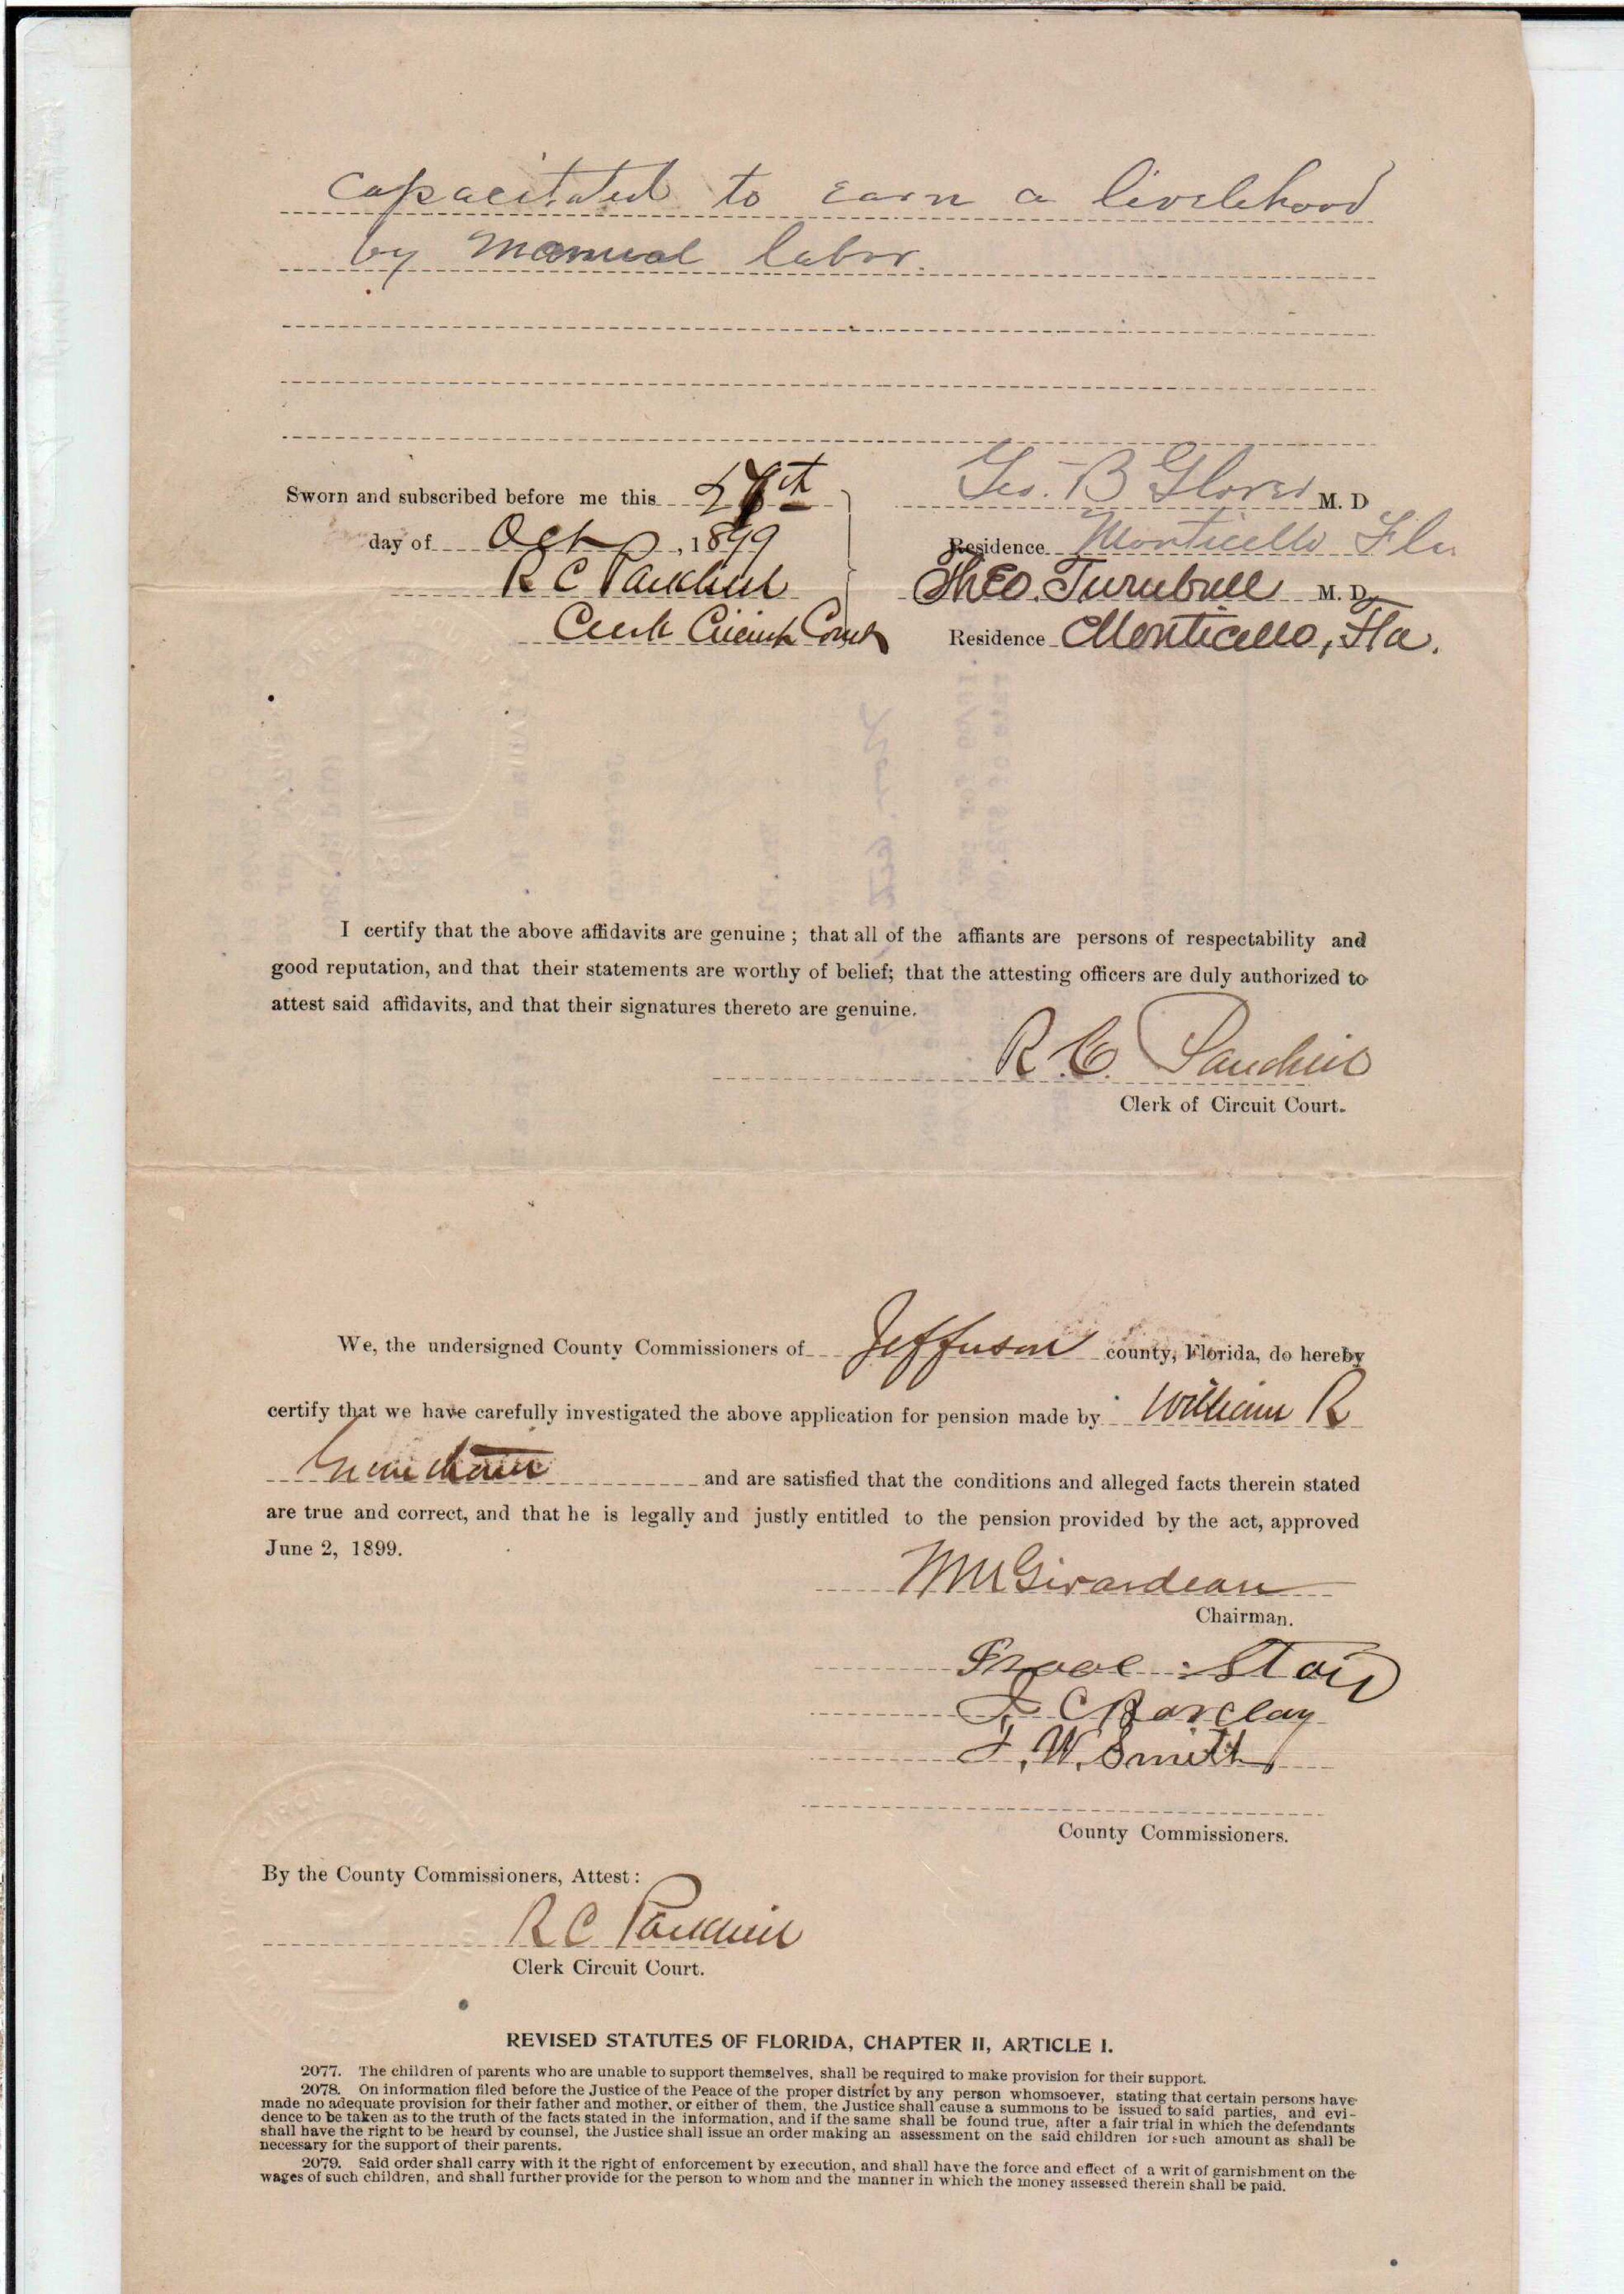 capacitated to earn a livelihood
by manual labor.
Sworn and subscribed before me this
Geo. B Glover M. D
day of Oct, 1899
Residence Monticello Fla
R C
Theo. Turnbull M. D.
Clerk Circuit Court
Residence Monticello, Fla.
I certify that the above affidavits are genuine; that all of the affiants are persons of respectability and
good reputation, and that their statements are worthy of belief; that the attesting officers are duly authorized to
attest said affidavits, and that their signatures thereto are genuine.
R. C.
Clerk of Circuit Court.
We, the undersigned County Commissioners of Jefferson county, Florida, do hereby
certify that we have carefully investigated the above application for pension made by William R
and are satisfied that the conditions and alleged facts therein stated
are true and correct, and that he is legally and justly entitled to the pension provided by the act, approved
June 2, 1899.
Girardeau
Chairman.
C Barclay
W. Smith
County Commissioners.
By the County Commissioners, Attest:
R C
Clerk Circuit Court.
REVISED STATUTES OF FLORIDA, CHAPTER II, ARTICLE I.
2077. The children of parents who are unable to support themselves, shall be required to make provision for their support.
2078. On information filed before the Justice of the Peace of the proper district by any person whomsoever, stating that certain persons have
made no adequate provision for their father and mother, or either of them, the Justice shall cause a summons to be issued to said parties, and evi-
dence to be taken as to the truth of the facts stated in the information, and if the same shall be found true, after a fair trial in which the defendants
shall have the right to be heard by counsel, the Justice shall issue an order making an assessment on the said children for such amount as shall be
necessary for the support of their parents.
2079. Said order shall carry with it the right of enforcement by execution, and shall have the force and effect of a writ of garnishment on the
wages of such children, and shall further provide for the person to whom and the manner in which the money assessed therein shall be paid.